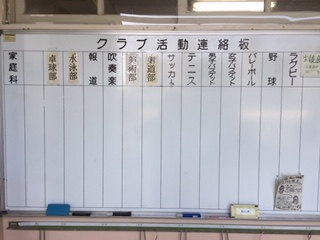 クラブ活動連絡板
ラグビー
野球
バレーボール
女子バスケット
男子バスケット
テニス
サッカー
剣道部
美術部
吹奏楽
報道
水泳部
卓球部
家庭科